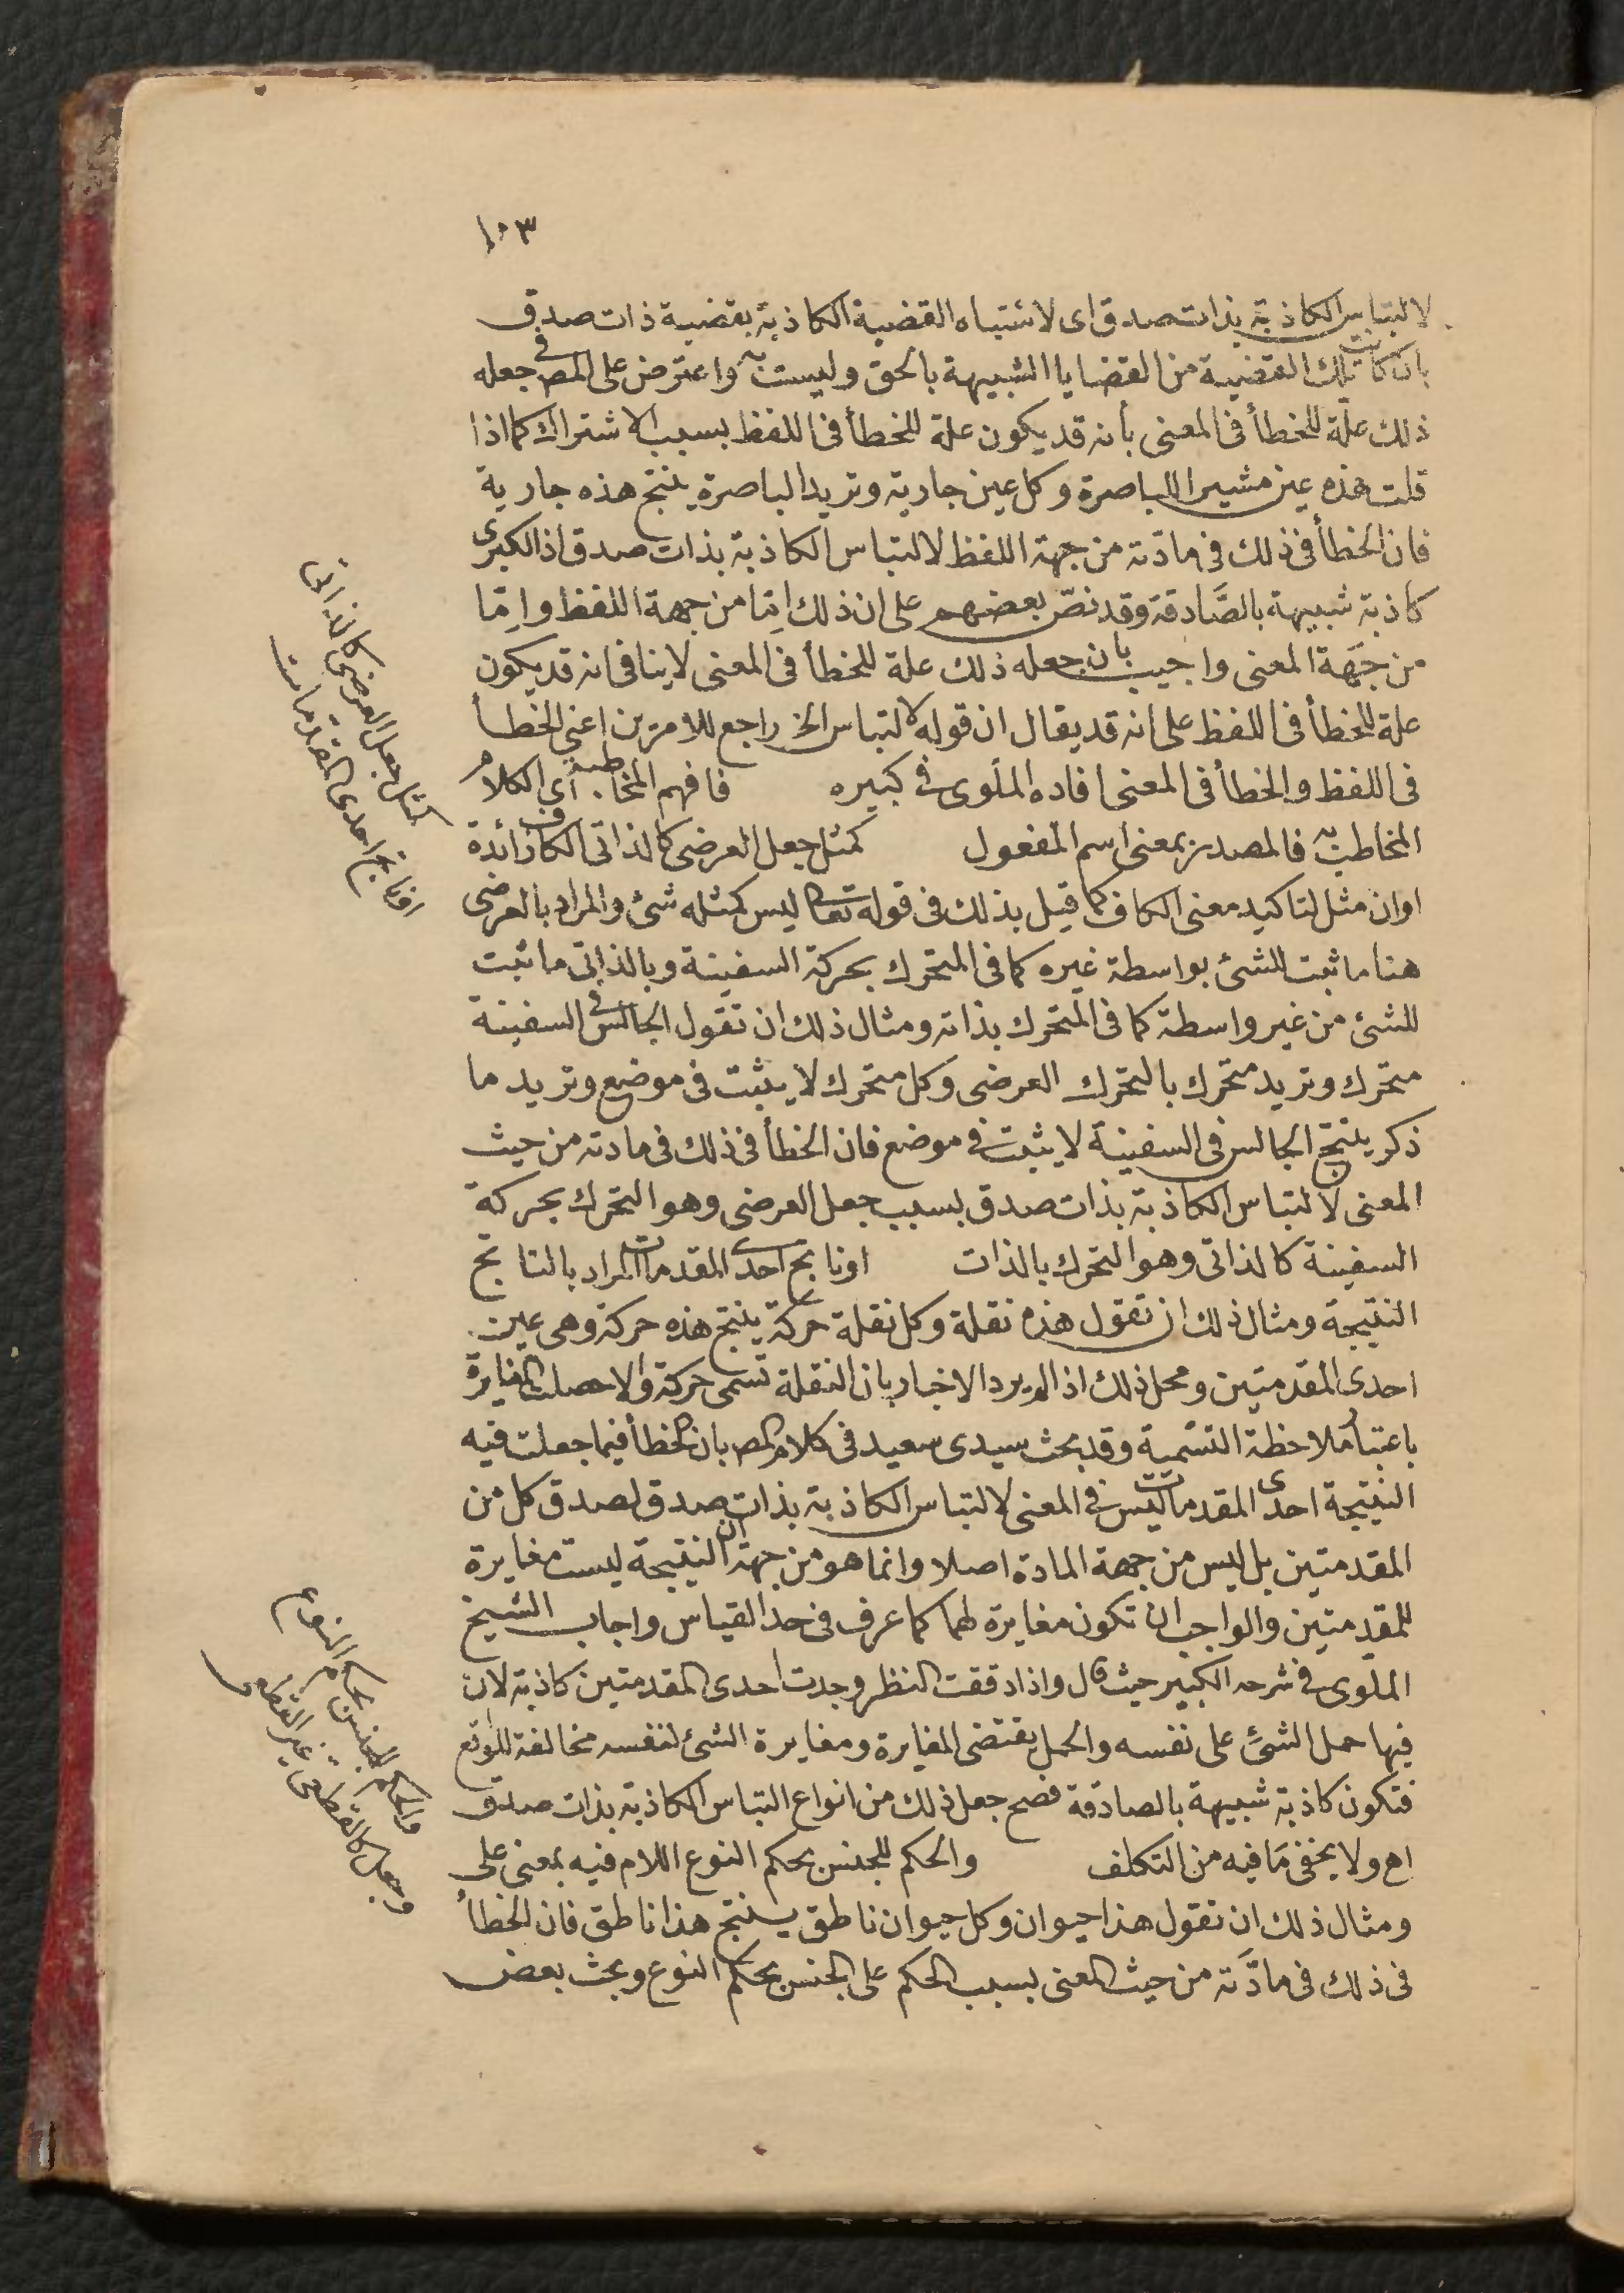 ١٠٣
لالتباس الكاذبة بذات صدق اى لاشتباه القضية الكاذبة بقضية ذات صدق
بان كانت تلك القضية من القضايا الشبيهة بالحق وليست به واعترض على المص فى جعله
ذلك علة للخطأ فى المعنى بأنه قد يكون علة للخطأ فى اللفظ بسبب الاشتراك كما اذا
قلت هذه عين مشيرا للباصرة وكل عين جارية وتريد الباصرة ينتج هذه جارية
فان الخطأ فى ذلك فى مادّته من جهة اللفظ لالتباس الكاذبة بذات صدق اذ الكبرى
كاذبة شبيهة بالصَّادقة وقد نصّ بعضهم على ان ذلك اِمّا من جهة اللفظ واِمّا
من جهة المعنى واجيب بان جعله ذلك علة للخطأ فى المعنى لا ينافى انه قد يكون
علة للخطأ فى اللفظ على انه قد يقال ان قوله لالتباس الخ راجع للامرين اعنى الخطأ
فى اللفظ والخطأ فى المعنى افاده الملوى فى كبيره فافهم المخاطبة أى الكلام
المخاطب به فالمصدر بمعنى اسم المفعول كمثل جعل العرضى كالذاتى الكاف زائدة
اوان مثل لتاكيد معنى الكاف كما قيل بذلك فى قوله تعالى ليس كمثله شئ والمراد بالعرضى
هنا ما ثبت للشئ بواسطة غيره كما فى المتحرك بحركة السفينة وبالذاتى ما ثبت
للشئ من غير واسطة كما فى المتحرك بذاته ومثال ذلك ان تقول الجالس فى السفينة
متحرك وتريد متحرك بالتحرك العرضى وكل متحرك لا يثبت فى موضع وتريد ما
ذكر ينتج الجالس فى السفينة لا يثبت فى موضع فان الخطأ فى ذلك فى مادته من حيث
المعنى لالتباس الكاذبة بذات صدق بسبب جعل العرضى وهو التحرك بحركة
السفينة كالذاتى وهو التحرك بالذات اوناتج احدى المقدمات المراد بالناتج
النتيجة ومثال ذلك ان تقول هذه نقلة وكل نقلة حركة ينتج هذه حركة وهى عين
احدى المقدمتين ومحل ذلك اذا لم يرد الاخبار بان النقلة تسمى حركة والا حصلت المغايرة
باعتبار ملاحظة التسمية وقد بحث سيدى سعيد فى كلام المص بان الخطأ فيما جعلت فيه
النتيجة احدى المقدمات ليس فى المعنى لالتباس الكاذبة بذات صدق لصدق كل من
المقدمتين بل ليس من جهة المادة اصلا وانما هو من جهة ان النتيجة ليست مغايرة
للمقدمتين والواجب ان تكون مغايرة لهما كما عرف فى حد القياس واجاب الشيخ
الملوى فى شرحه الكبير حيث قال واذا دققت النظر وجدت احدى المقدمتين كاذبة لان
فيها حمل الشئ على نفسه والحمل يقتضى المغايرة ومغايرة الشئ لنفسه مخالفة للواقع
فتكون كاذبة شبيهة بالصادقة فصح جعل ذلك من انواع التباس الكاذبة بذات صدق
اهـ ولا يخفى مَا فيه من التكلف والحكم للجنس بحكم النوع اللام فيه بمعنى على
ومثال ذلك ان تقول هذا حيوان وكل حيوان ناطق ينتج هذا ناطق فان الخطأ
فى ذلك فى مادَّته من حيث المعنى بسبب الحكم على الجنس بحكم النوع وبحث بعض
كمثل جعل العرضى كالذاتى
اوناتج احدى المقدمات
والحكم للجنس بحكم النوع
وجعل كالقطعى غير القطعى